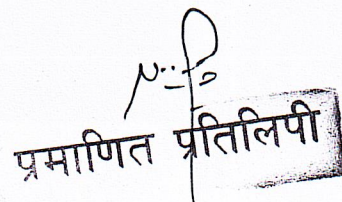 प्रमाणित प्रतिलिपी